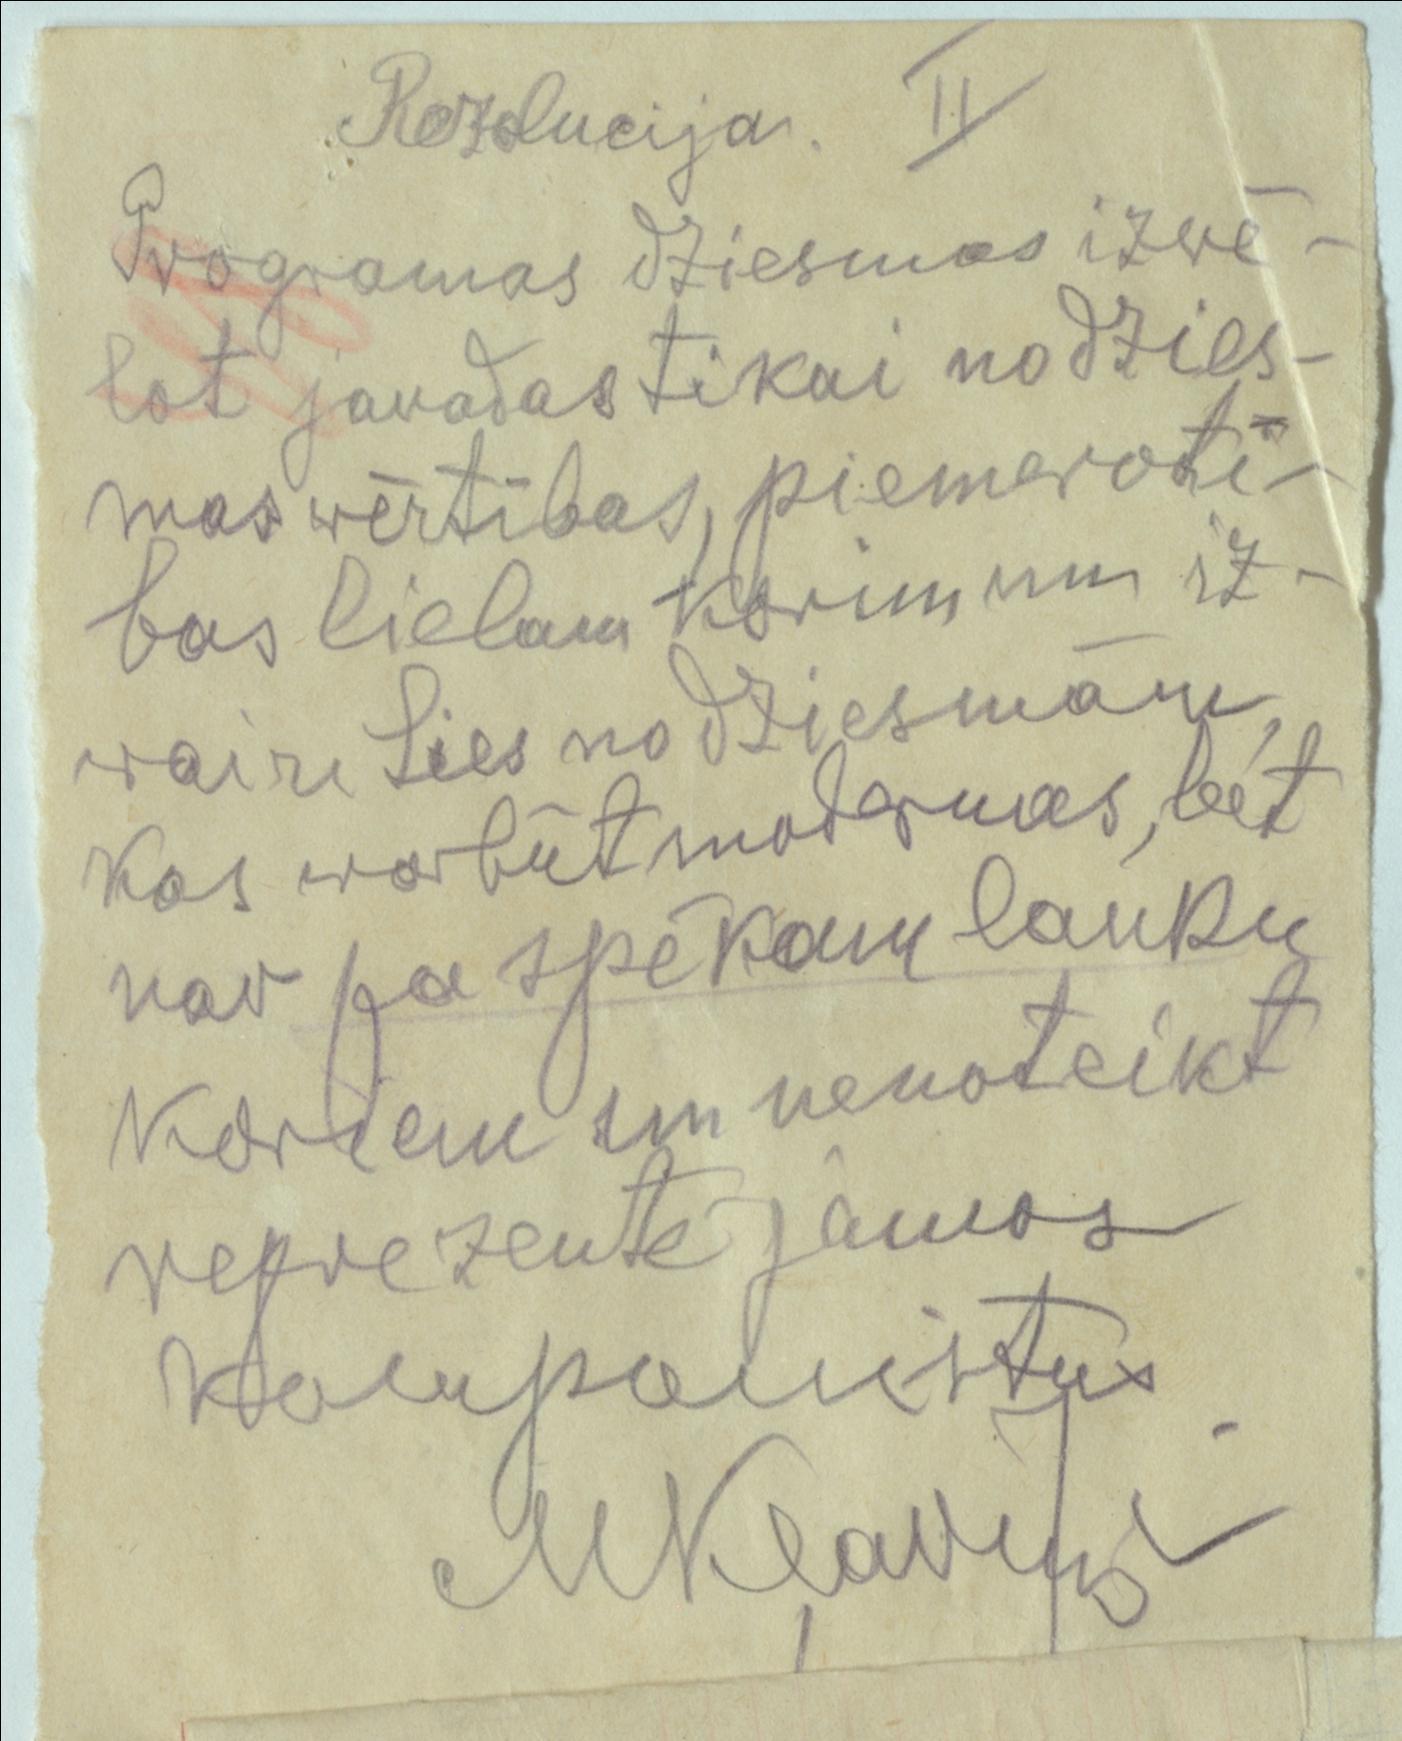 Rezolucija. II
Programas dziesmas izwē-
lot jaraugas tikai no dzies-
mas wērtības, piemeroti-
bas lielam korim un iz-
wairities no dziesmām,
kas warbūt modernas, bet
nav pa spēkam lauku
koriem un nenoteikt
reprezentējamos
komponistus
MKļaviņš